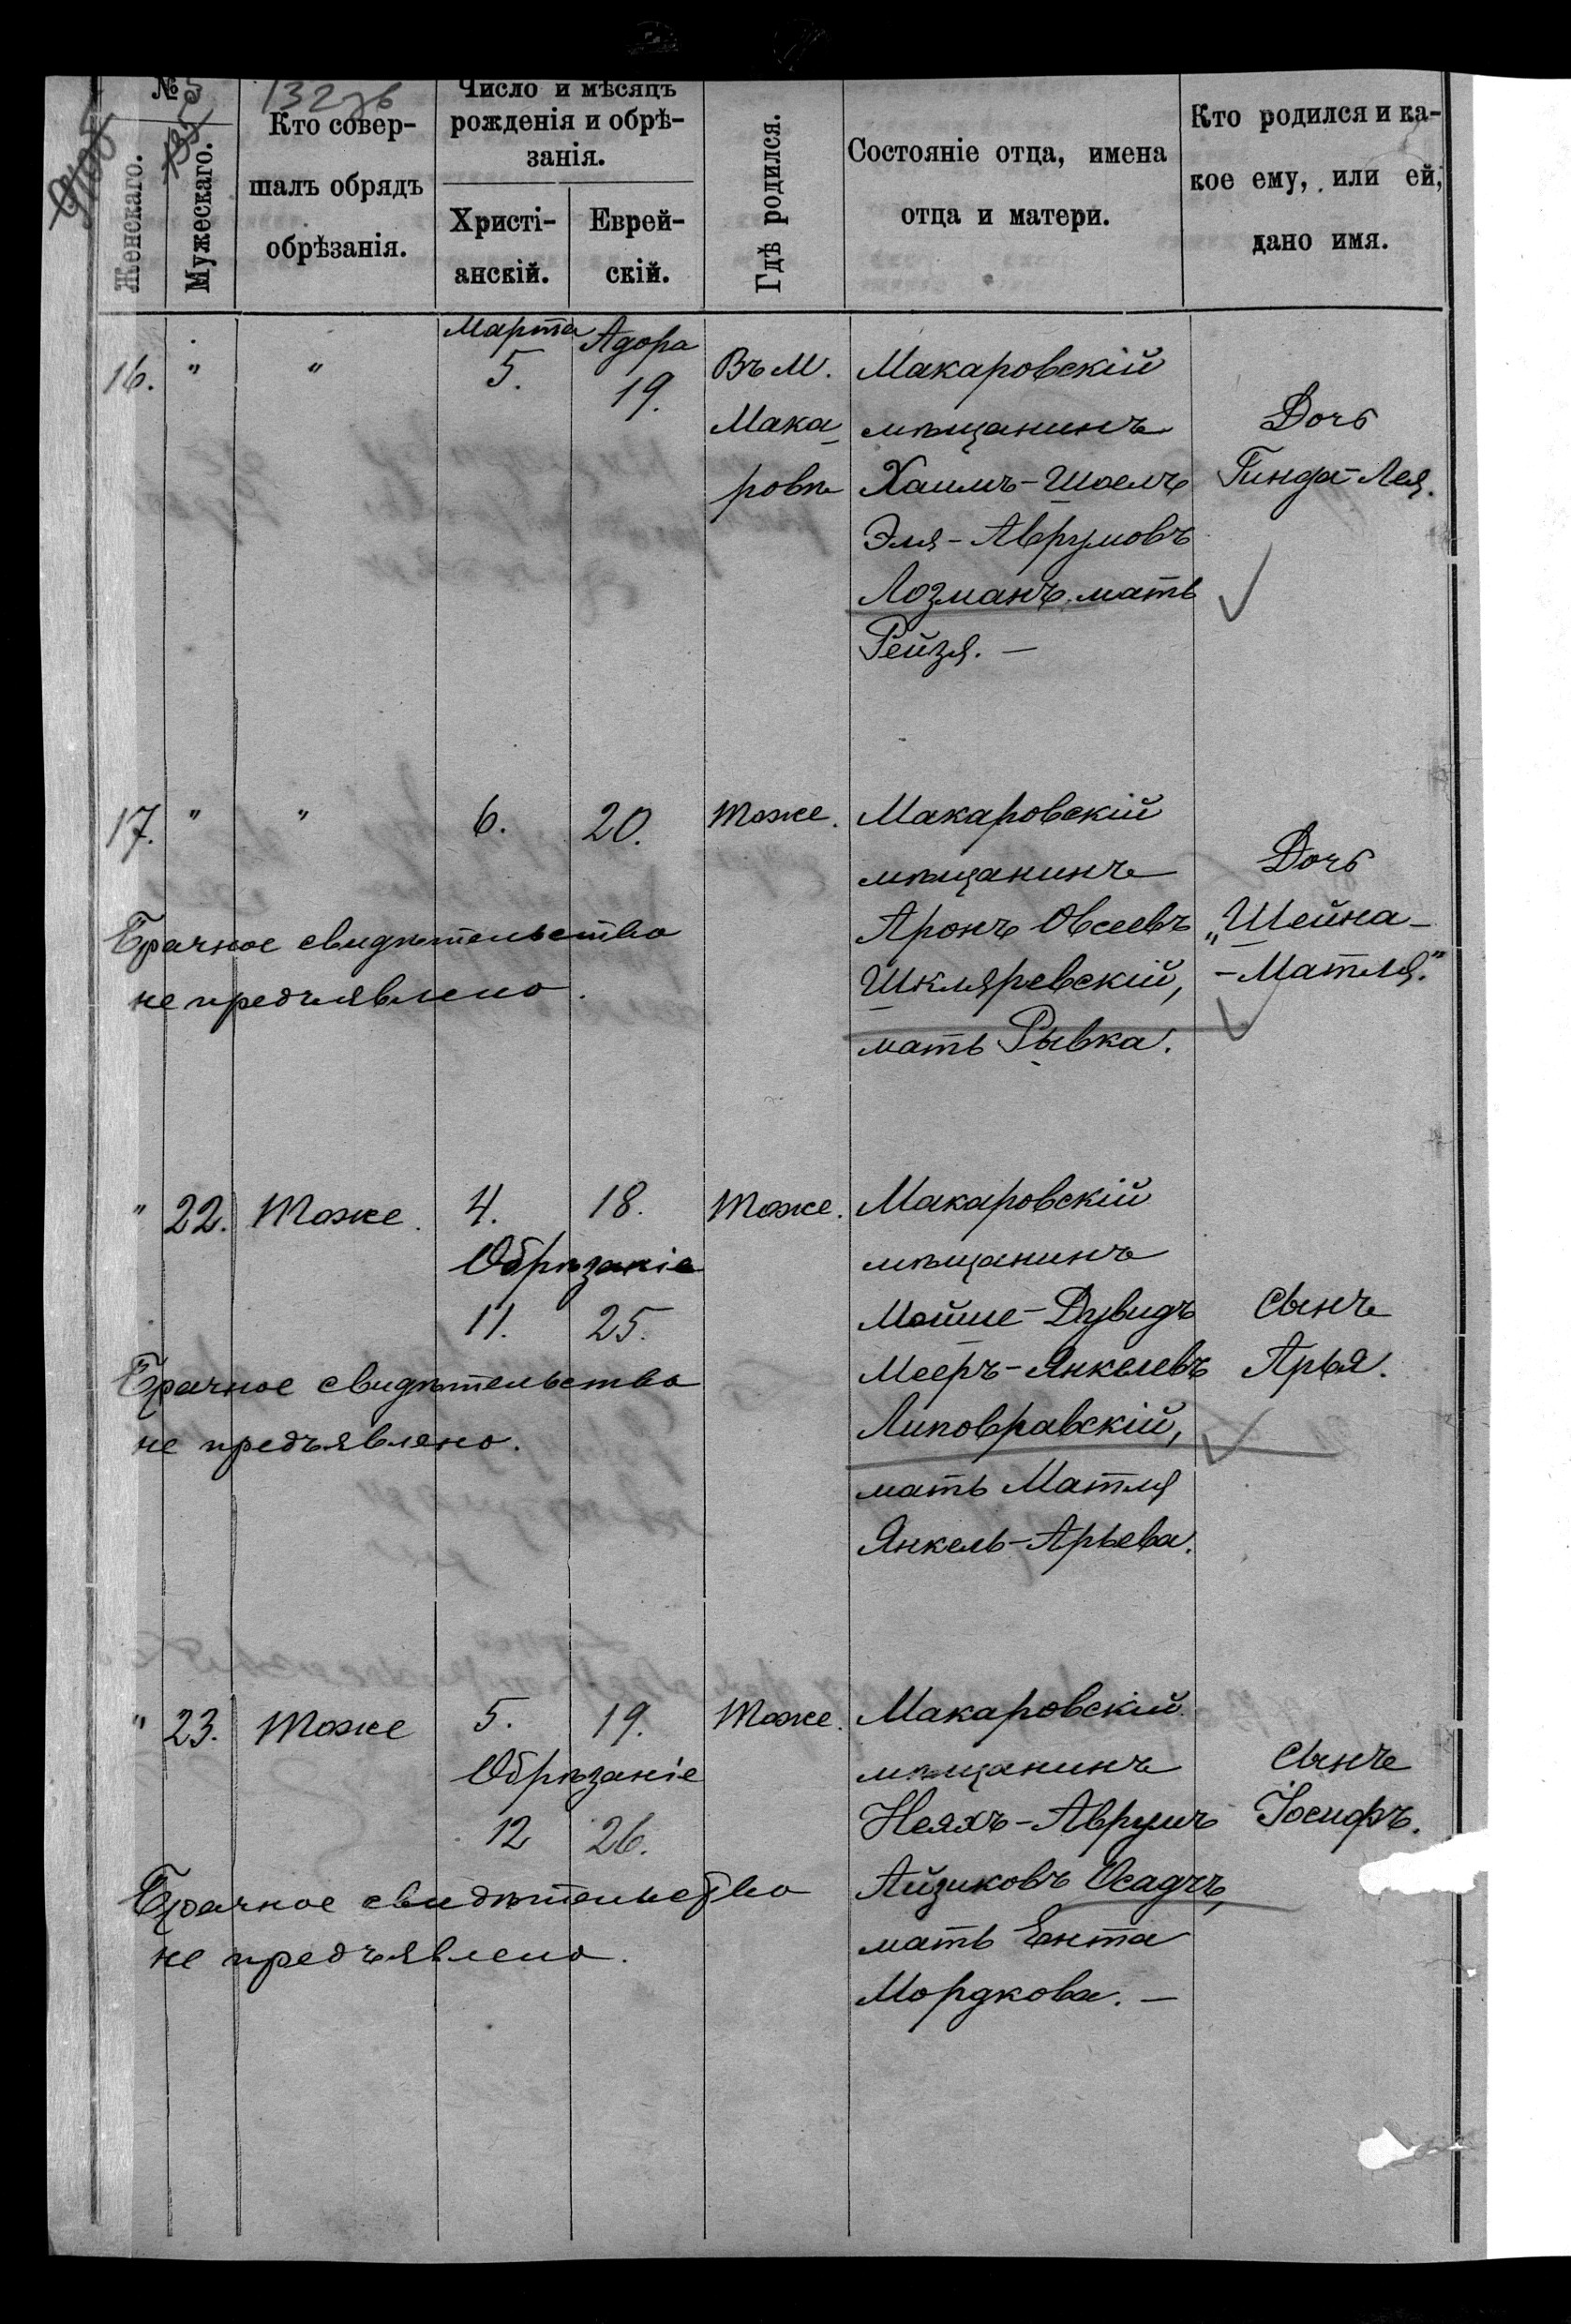 №
Женскаго.
Мужескаго.
Кто совер-
шалъ обрядъ
обрѣзанія.
Число и мѣсяцъ
рожденія и обрѣ-
занія.
Христі-
анскій.
Еврей-
скій.
Гдѣ родился.
Состояніе отца, имена
отца и матери.
Кто родился и ка-
кое ему, или ей,
дано имя.
16. " " Марта 5. Адора 19.
Въ М.
Мака-
ровѣ
Макаровскій
мѣщанинъ
Хаимъ-Шоелъ
Эля-Аврумовъ
Лозманъ, мать
Рейзя. —
Дочь
Гинда-Лея.
17. " " 6. 20. Тоже.
Макаровскій
мѣщанинъ
Аронъ Овсеевъ
Шкляревскій,
мать Рывка.
Дочь
„Шейна-
-Матля."
Брачное свидѣтельство
не предъявлено.
" 22. Тоже. 4. 18. Тоже.
Обрѣзаніе
11. 25.
Макаровскій
мѣщанинъ
Мойше-Дувидъ
Мееръ-Янкелевъ
Липовравскій,
мать Матля
Янкель-Арьева.
Сынъ
Арья.
Брачное свидѣтельство
не предъявлено.
" 23. Тоже 5. 19. Тоже.
Обрѣзаніе
12 26.
Макаровскій
мѣщанинъ
Неяхъ-Аврумъ
Айзиковъ Осадчъ,
мать Ента
Мордкова. —
Сынъ
Іосифъ.
Брачное свидѣтельство
не предъявлено.